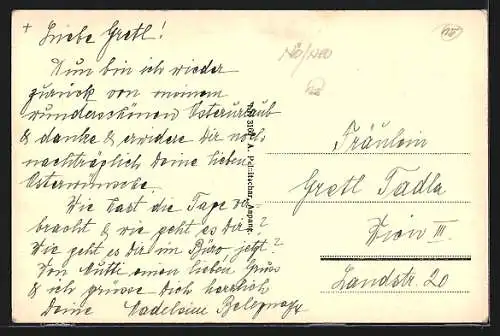 Liebe Gretl!
Nun bin ich wieder
zurück von meinem
wunderschönen Osterurlaub
& danke & erwidere Dir noch
nachträglich Deine lieben
Osterwünsche.
Wie hast die Tage
bracht & wie geht es Dir?
Wie geht es Dir im Büro jetzt?
Von Mutti einen lieben Gruss
& ich grüsse Dich herzlich
Deine
Fräulein
Gretl Tadla
Wien III.
Landstr. 20